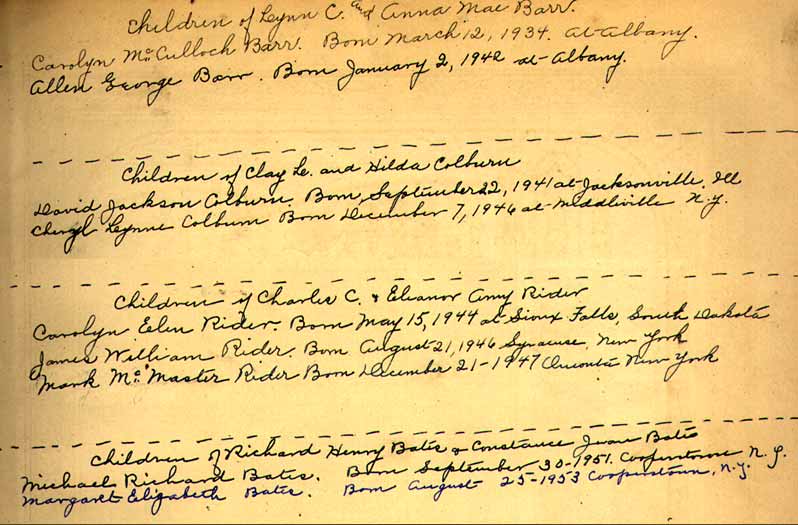 Children of Lynn C. and Anna Mae Barr.
Carolyn McCulloch Barr. Born March 12, 1934. at Albany.
Allen George Barr. Born January 2, 1942 at Albany.
Children of Clay Le. and Hilda Colburn
David Jackson Colburn. Born, September 22, 1941 at Jacksonville, Ill
Cheryl Lynne Colburn Born December 7, 1946 at Middleville N.Y.
Children of Charles C. & Eleanor Amy Rider
Carolyn Elen Rider. Born May 15, 1944 at Sioux Falls, South Dakota
James William Rider. Born August 21, 1946 Syracuse, New York
Mark McMaster Rider Born December 21-1947 Oneonta New York
Children of Richard Henry Bates & Constance Juan Bates
Michael Richard Bates. Born September 30-1951. Cooperstown N.Y.
Margaret Elizabeth Bates. Born August 25-1953 Cooperstown, N.Y.